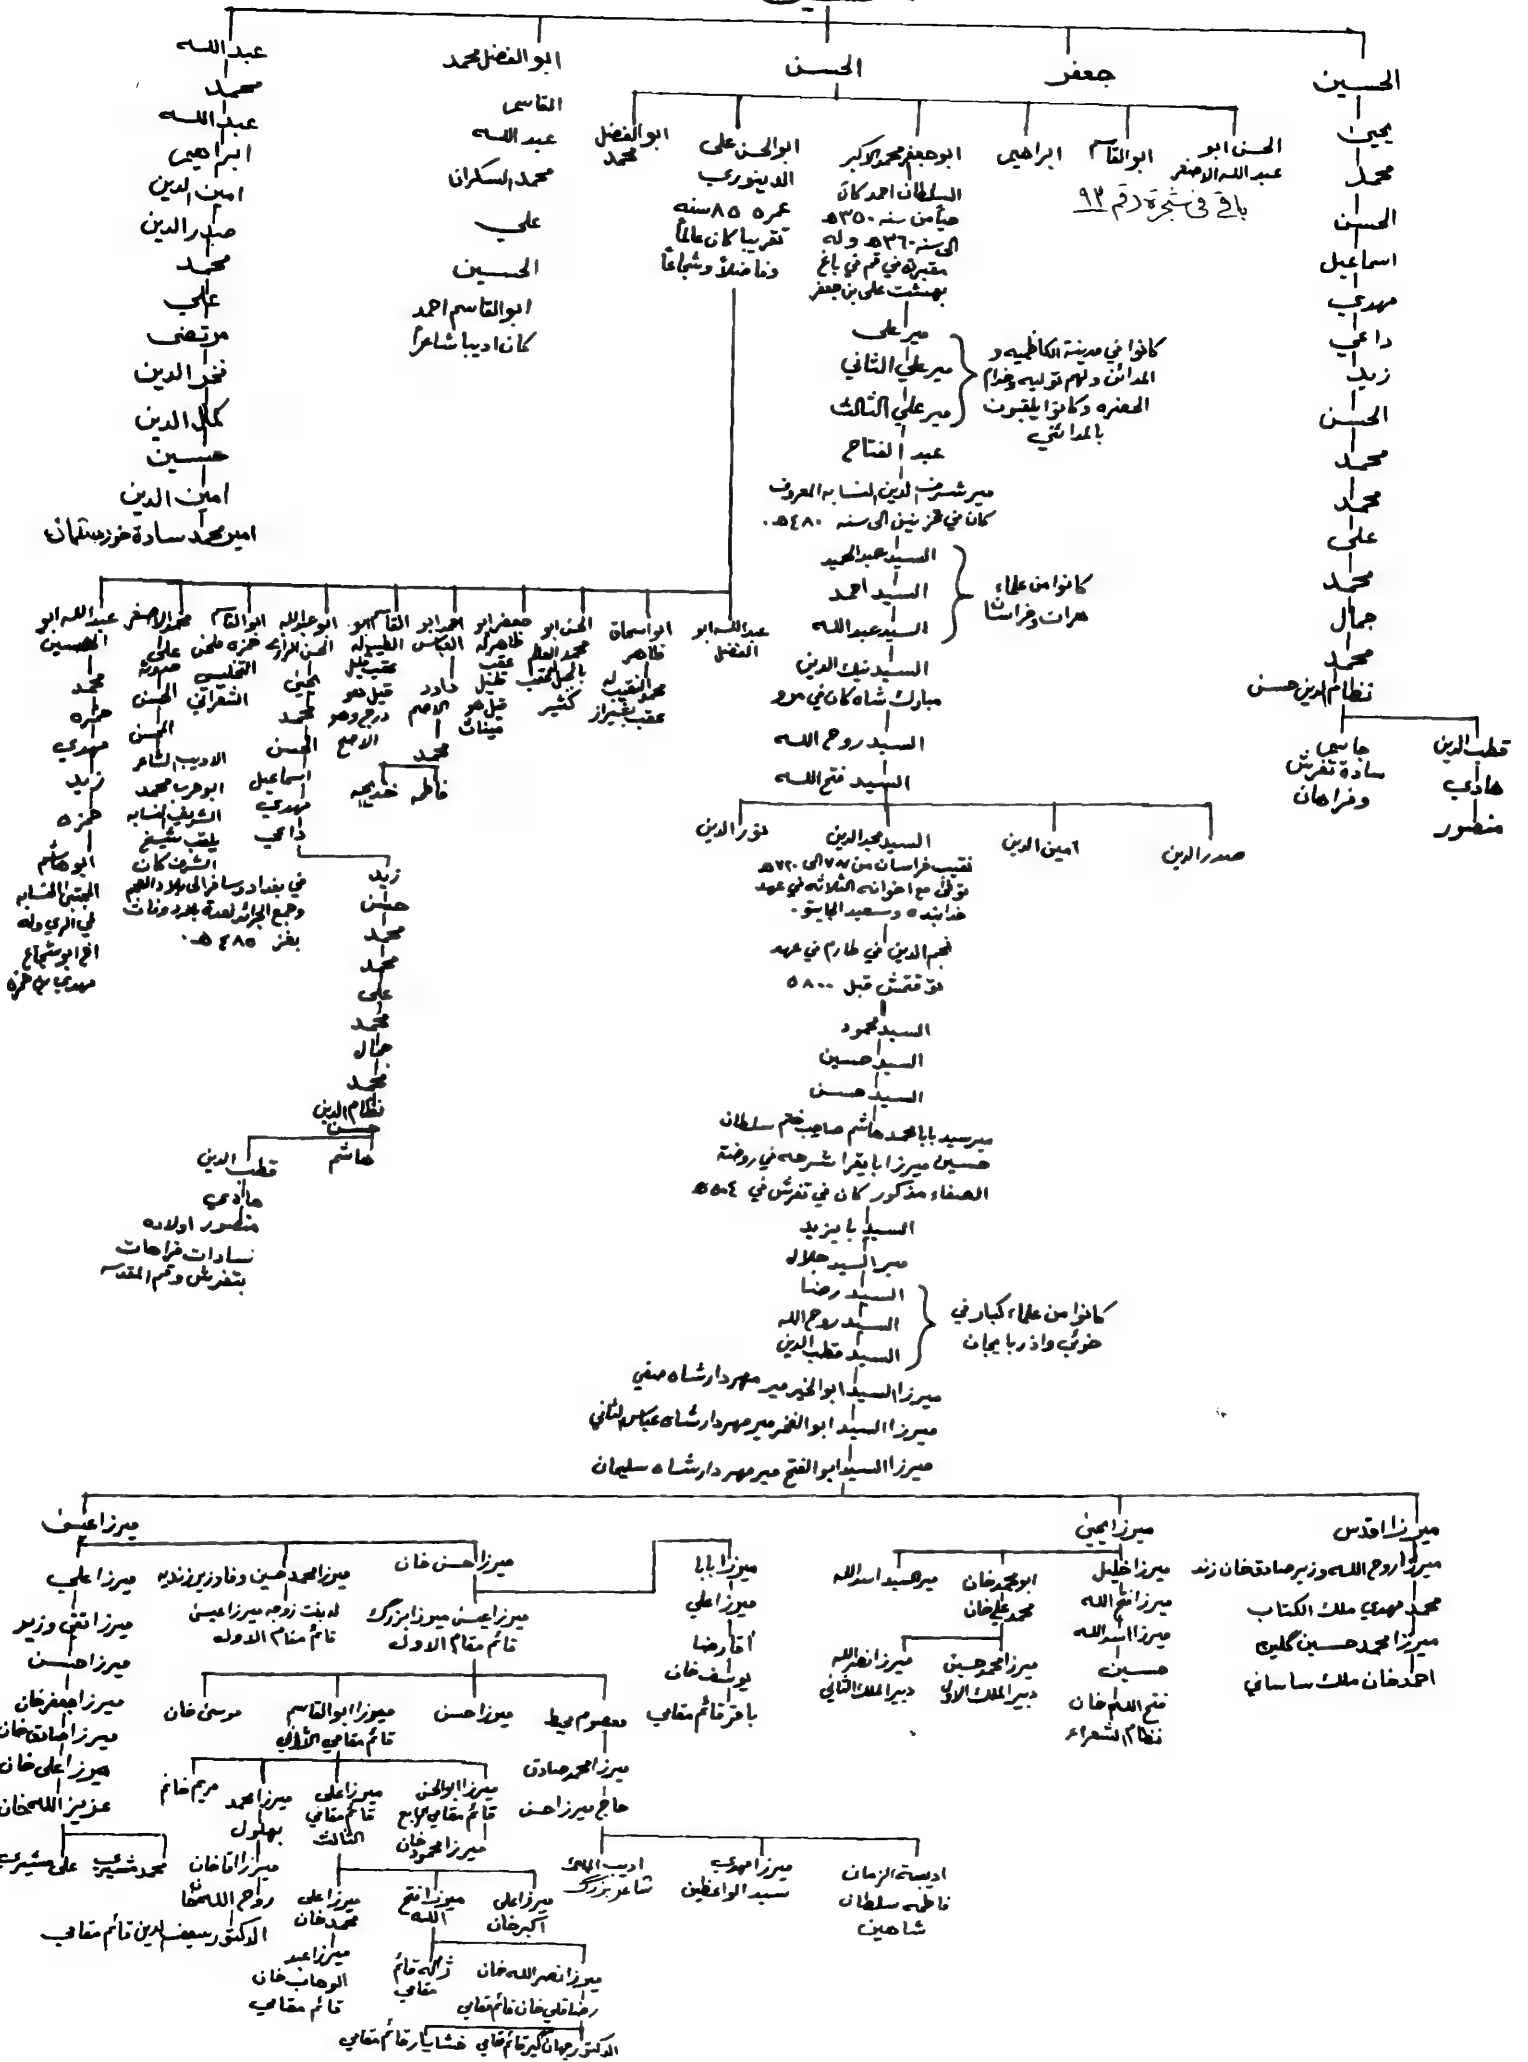 الحسين
جعفر
الحسن
ابوالفضل محمد
عبدالله
الحسين
يحيى
محمد
الحسن
اسماعيل
مهدي
داعي
زيد
الحسن
محمد
محمد
علي
محمد
جمال
محمد
نظام الدين حسن
قطب الدين
هادي
منصور
سادة تفرش
وفراهان
الحسن ابو
عبدالله الاصغر
باقي في شجرة رقم ٩٣
ابوالقاسم
ابراهيم
ابوجعفر محمد الاكبر
السلطان احمد كان
حياً من سنه ٣٥٠ه
الى سنه ٣٦٠ه وله
مقبرة في قم في باغ
بهشت علي بن جعفر
مير علي
مير علي الثاني
مير علي الثالث
كانوا في مدينة الكاظميه و
المدائن ولهم توليه وخدام
الحضره وكانوا يلقبون
بالمدائني
عبد الفتاح
مير شرف الدين النسابه المعروف
كان في قزنين الى سنه ٤٨٠ه.
السيد عبدالحميد
السيد احمد
السيد عبدالله
كانوا من علماء
هرات وخراسان
السيد نيك الدين
مبارك شاه كان في مرو
السيد روح الله
السيد فتح الله
صدرالدين
امين الدين
السيد مجدالدين
نورالدين
نقيب خراسان من ٧٨٧ الى ٧٢٠ه
توطن مع اخوانه الثلاثه في عهد
خدابنده وسعيد الجايتو.
نجم الدين في طارم في عهد
توقتمش قبل ٨٠٠ه
السيد محمود
السيد حسين
السيد حسن
مير سيد بابا محمد هاشم صاحب ختم سلطان
حسين ميرزا بايقرا شرحه في روضة
الصفاء مذكور كان في تفرش في
السيد بايزيد
مير السيد جلال
السيد رضا
السيد روح الله
السيد قطب الدين
كانوا من علماء كبار في
خوئي واذربايجان
ميرزا السيد ابوالخير مير مهردار شاه صفي
ميرزا السيد ابوالفخر مير مهردار شاه عباس الثاني
ميرزا السيد ابوالفتح مير مهردار شاه سليمان
ابوالحسن علي
الدينوري
عمره ٨٥ سنه
تقريبا كان عالماً
وفاضلاً وشجاعاً
ابوالفضل
محمد
القاسم
عبدالله
محمد السكران
علي
الحسين
ابوالقاسم احمد
كان اديبا شاعراً
محمد
عبدالله
ابراهيم
امين الدين
صدرالدين
محمد
علي
مرتضى
فخرالدين
كمال الدين
حسين
امين الدين
امير محمد سادة خوزستان
عبدالله ابو
الفضل
ابواسماة
طاهر
محمد النقيب له
عقب بشيراز
الحسن ابو
محمد العالم
بالجبل عقب
كثير
جعفر ابو
طاهر له
عقب
قليل
قيل هو
ميناث
احمد ابو
العباس
داود
الاصم
محمد
فاطمه
خديجه
القاسم ابو
الطيب له
عقب قليل
قيل هو
درج وهو
الاصح
ابوعبدالله
يحيى
محمد
الحسن
اسماعيل
مهدي
داعي
زيد
حسن
محمد
محمد
علي
محمد
جمال
محمد
نظام الدين
حسن
هاشم
قطب الدين
هادي
منصور اولاده
سادات فراهان
بتفرش وقم المقدسه
ابوالقاسم
حمزه
التفليسي
الشعراني
محمد الاصغر
علي
حمزه
الحسن
الحسن
الاديب الشاعر
ابوحرب محمد
الشريف النسابه
يلقب شيخ
الشرف كان
في بغداد وسافر الى بلاد العجم
وجمع الجرائد لعدة بلاد ومات
بغز ٤٨٥ه.
عبدالله ابو
الحسين
محمد
حمزه
مهدي
زيد
حمزه
ابوهاشم
المجتبى النسابه
في الري وله
اخ ابوشجاع
مهدي بن حمزه
ميرزا اقدس
ميرزا روح الله وزير صادق خان زند
محمد مهدي ملك الكتاب
ميرزا محمد حسين
احمد خان ملك ساساني
ميرزا يحيى
ميرزا خليل
ميرزا فتح الله
ميرزا اسد الله
حسين
فتح الله خان
نظام الشعراء
ابومحمد خان
محمد علي خان
ميرزا محمد حسين
دبيرالملك الاول
ميرزا نصرالله
دبيرالملك الثاني
مير سيد اسدالله
ميرزا عيسى
ميرزا بابا
ميرزا علي
آقا رضا
يوسف خان
باقر قائم مقامي
ميرزا حسن خان
ميرزا عيسى ميرزا بزرگ
قائم مقام الاول
ميرزا محمد حسين وفا وزير زنديه
له بنت زوجه ميرزا عيسى
قائم مقام الاول
ميرزا علي
ميرزا تقي وزير
ميرزا حسن
ميرزا جعفر خان
ميرزا صادق خان
ميرزا علي خان
عزيز الله خان
محمد مشيري
علي مشيري
معصوم محيط
ميرزا حسن
ميرزا ابوالقاسم
قائم مقامي الثاني
موسى خان
ميرزا محمد صادق
حاج ميرزا حسن
اديبة الزمان
فاطمه سلطان
شاهين
ميرزا مهدي
سيد الواعظين
اديب
شاعر بزرگ
ميرزا ابوالحسن
قائم مقامي الرابع
ميرزا محمود خان
ميرزا علي
قائم مقامي
الثالث
ميرزا محمد
بهلول
ميرزا اقا خان
روح الله خان
الدكتور سيف الدين قائم مقامي
مريم خانم
ميرزا علي
اكبر خان
ميرزا فتح
الله
ميرزا علي
محمد خان
ميرزا عبد
الوهاب خان
قائم مقامي
ميرزا نصرالله خان
رضاقلي خان قائم مقامي
ژاله قائم
مقامي
الدكتور جهانگير قائم مقامي
خشايار قائم مقامي